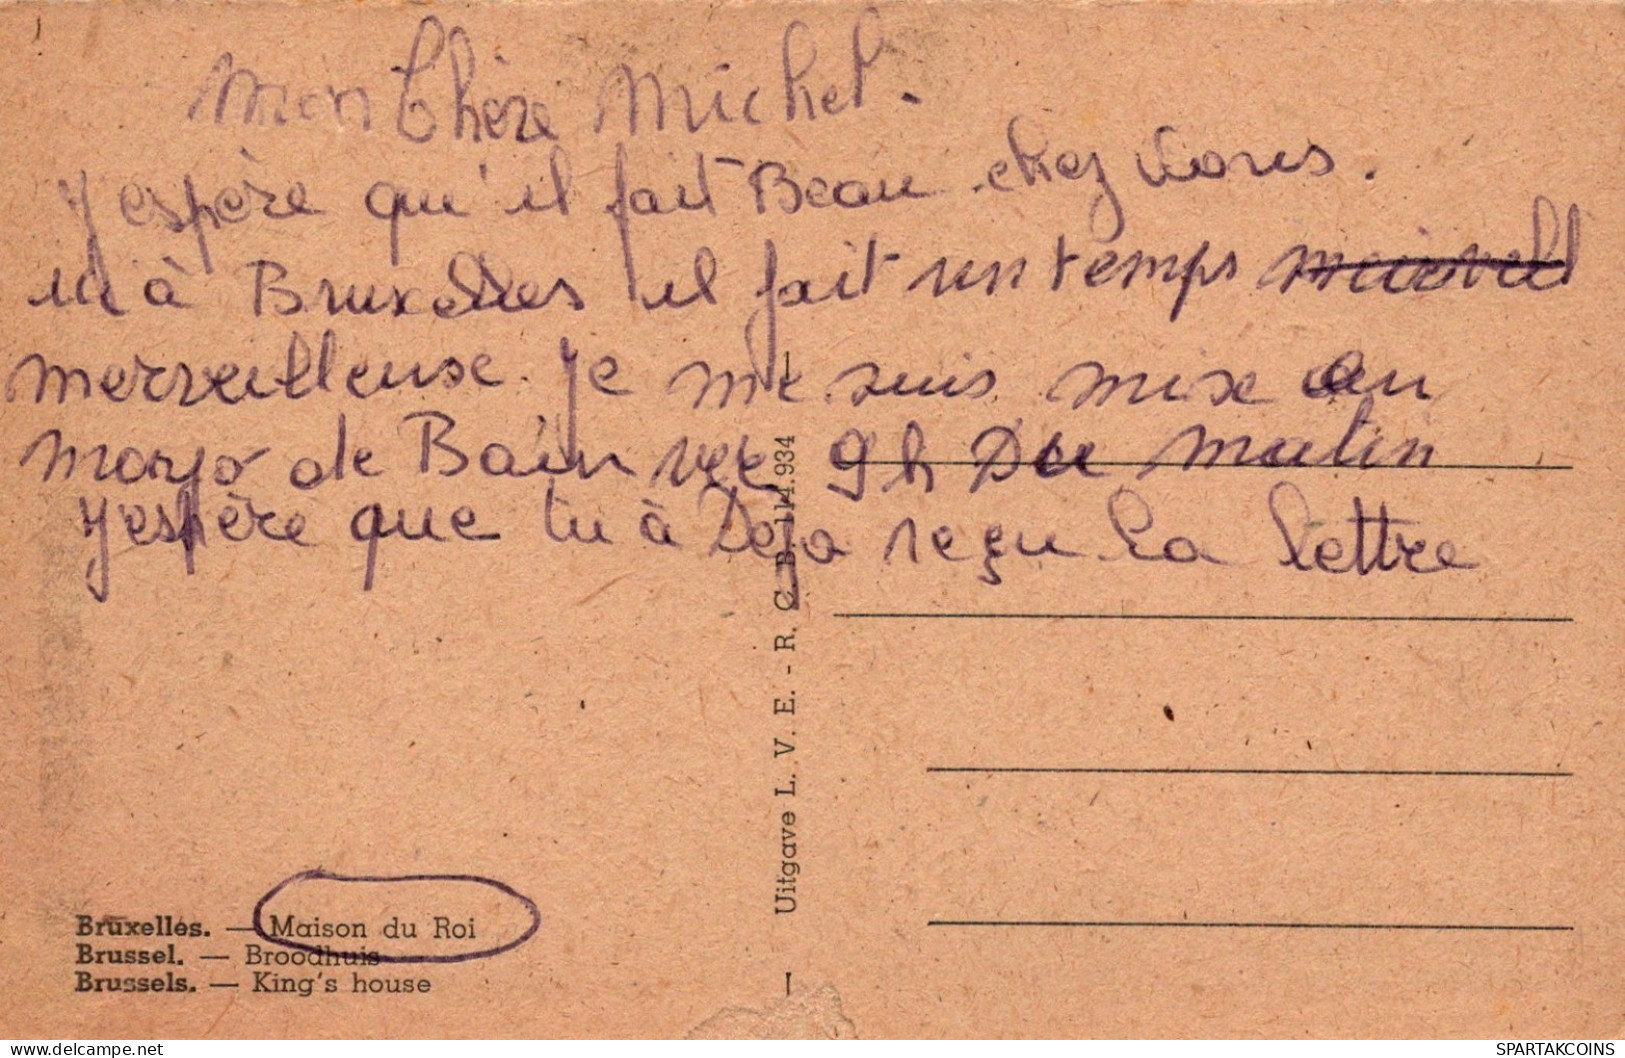 Mon Chère Michel.
J'espère qu'il fait Beau chez vous.
ici à Bruxelles il fait un temps
merveilleuse. Je me suis mise en
mayo de Bain ver 9 h Du matin
J'espère que tu à Deja reçu La lettre
Bruxelles. — Maison du Roi
Brussel. — Broodhuis
Brussels. — King's house
Uitgave L. V. E. - R. C. B. 114.934
SPARTAKCOINS
delcampe.net